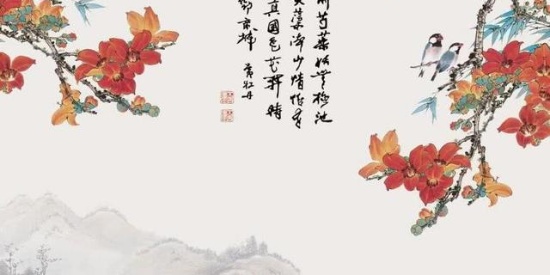 前芍藥妖無格池
芙蕖淨少情惟有
真國色花開時
動京城
賞牡丹